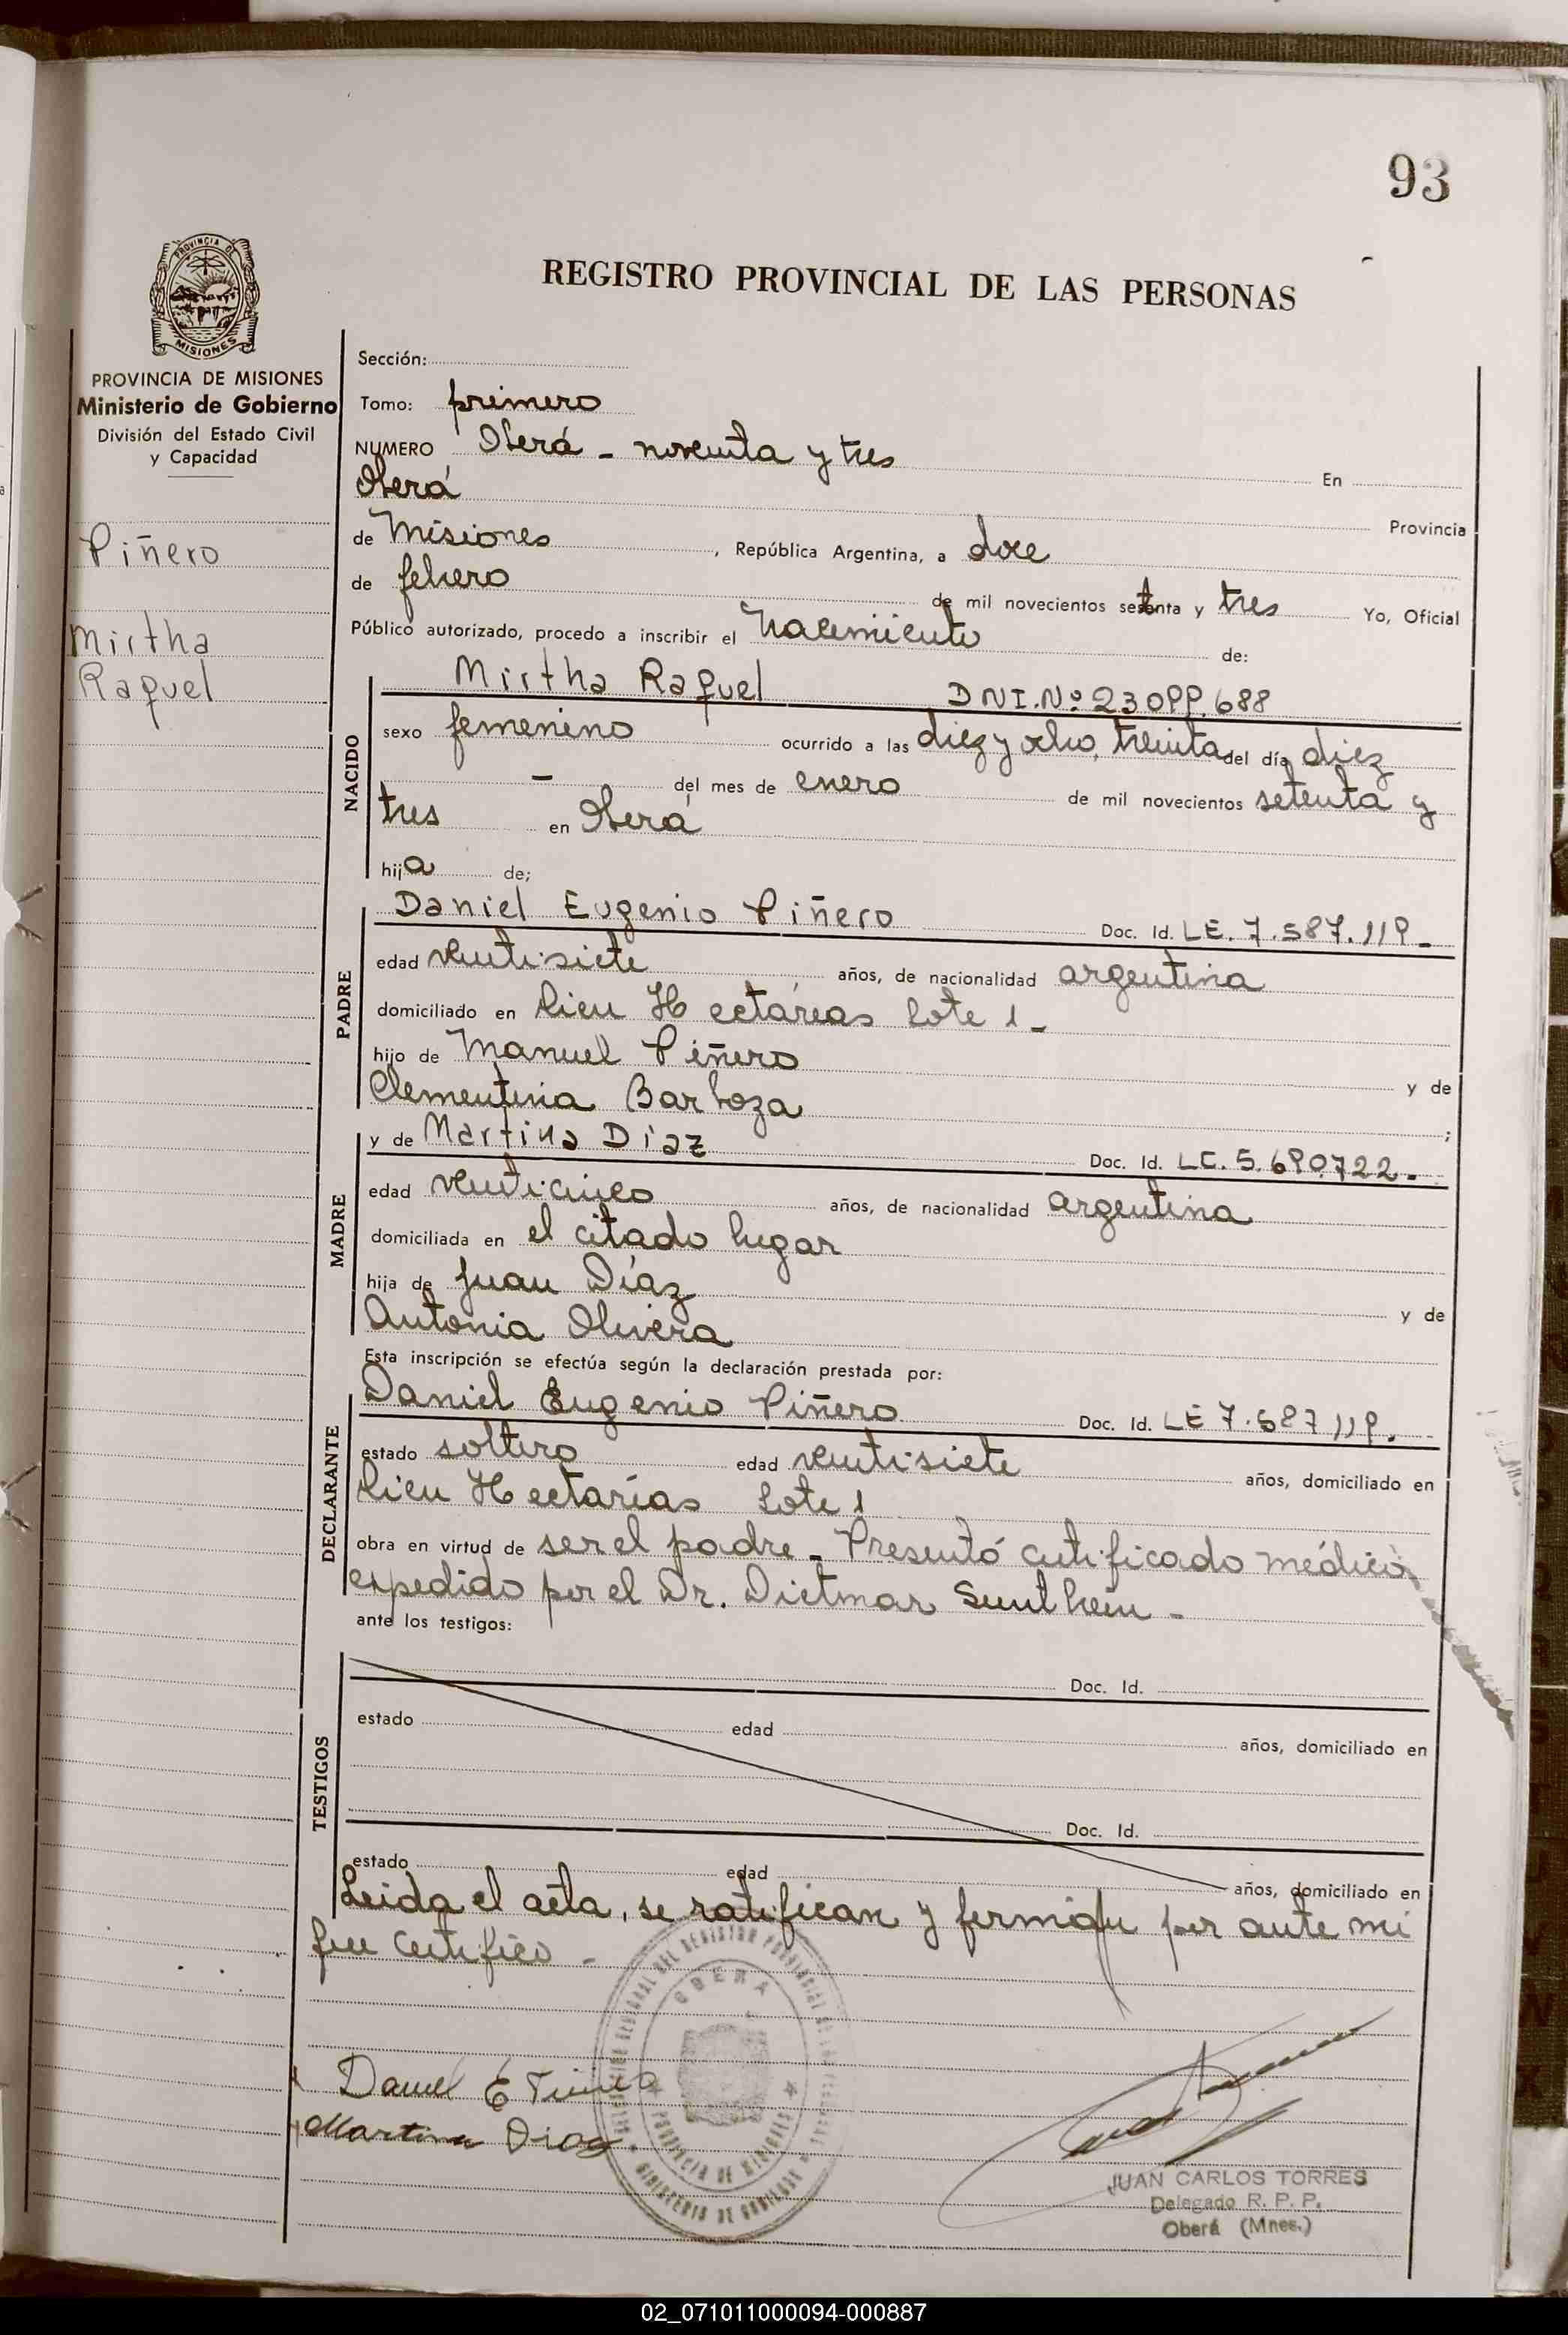 93
REGISTRO PROVINCIAL DE LAS PERSONAS
PROVINCIA DE MISIONES
Ministerio de Gobierno
División del Estado Civil
y Capacidad
Piñero
Mirtha
Raquel
Sección:
Tomo: primero
NUMERO Oberá - noventa y tres En
Oberá Provincia
de Misiones, República Argentina, a doce
de febrero de mil novecientos setenta y tres Yo, Oficial
Público autorizado, procedo a inscribir el Nacimiento de:
NACIDO
Mirtha Raquel DNI.Nº 23099.688
sexo femenino ocurrido a las diez y ocho, treinta del día diez
- del mes de enero de mil novecientos setenta y
tres en Oberá
hija de;
PADRE
Daniel Eugenio Piñero Doc. Id. LE. 7.587.119-
edad veintisiete años, de nacionalidad argentina
domiciliado en Cien Hectáreas Lote 1-
hijo de Manuel Piñero y de
Clementina Barboza ;
MADRE
y de Martina Diaz Doc. Id. LC. 5.690722-
edad veinticinco años, de nacionalidad argentina
domiciliada en el citado lugar
hija de Juan Díaz y de
Antonia Olivera
Esta inscripción se efectúa según la declaración prestada por:
DECLARANTE
Daniel Eugenio Piñero Doc. Id. LE 7.587119.
estado soltero edad veintisiete años, domiciliado en
Cien Hectarías Lote 1
obra en virtud de ser el padre - Presentó certificado médico
expedido por el Dr. Dietmar -
ante los testigos:
TESTIGOS
Doc. Id.
estado edad años, domiciliado en
Doc. Id.
estado edad años, domiciliado en
Leida el acta, se ratifican y firman por ante mi
que certifico -
Daniel E Piñero
Martina Diaz
OBERA
PROVINCIA DE MISIONES
MINISTERIO DE GOBIERNO
JUAN CARLOS TORRES
Delegado R. P. P.
Oberá (Mnes.)
02_071011000094-000887